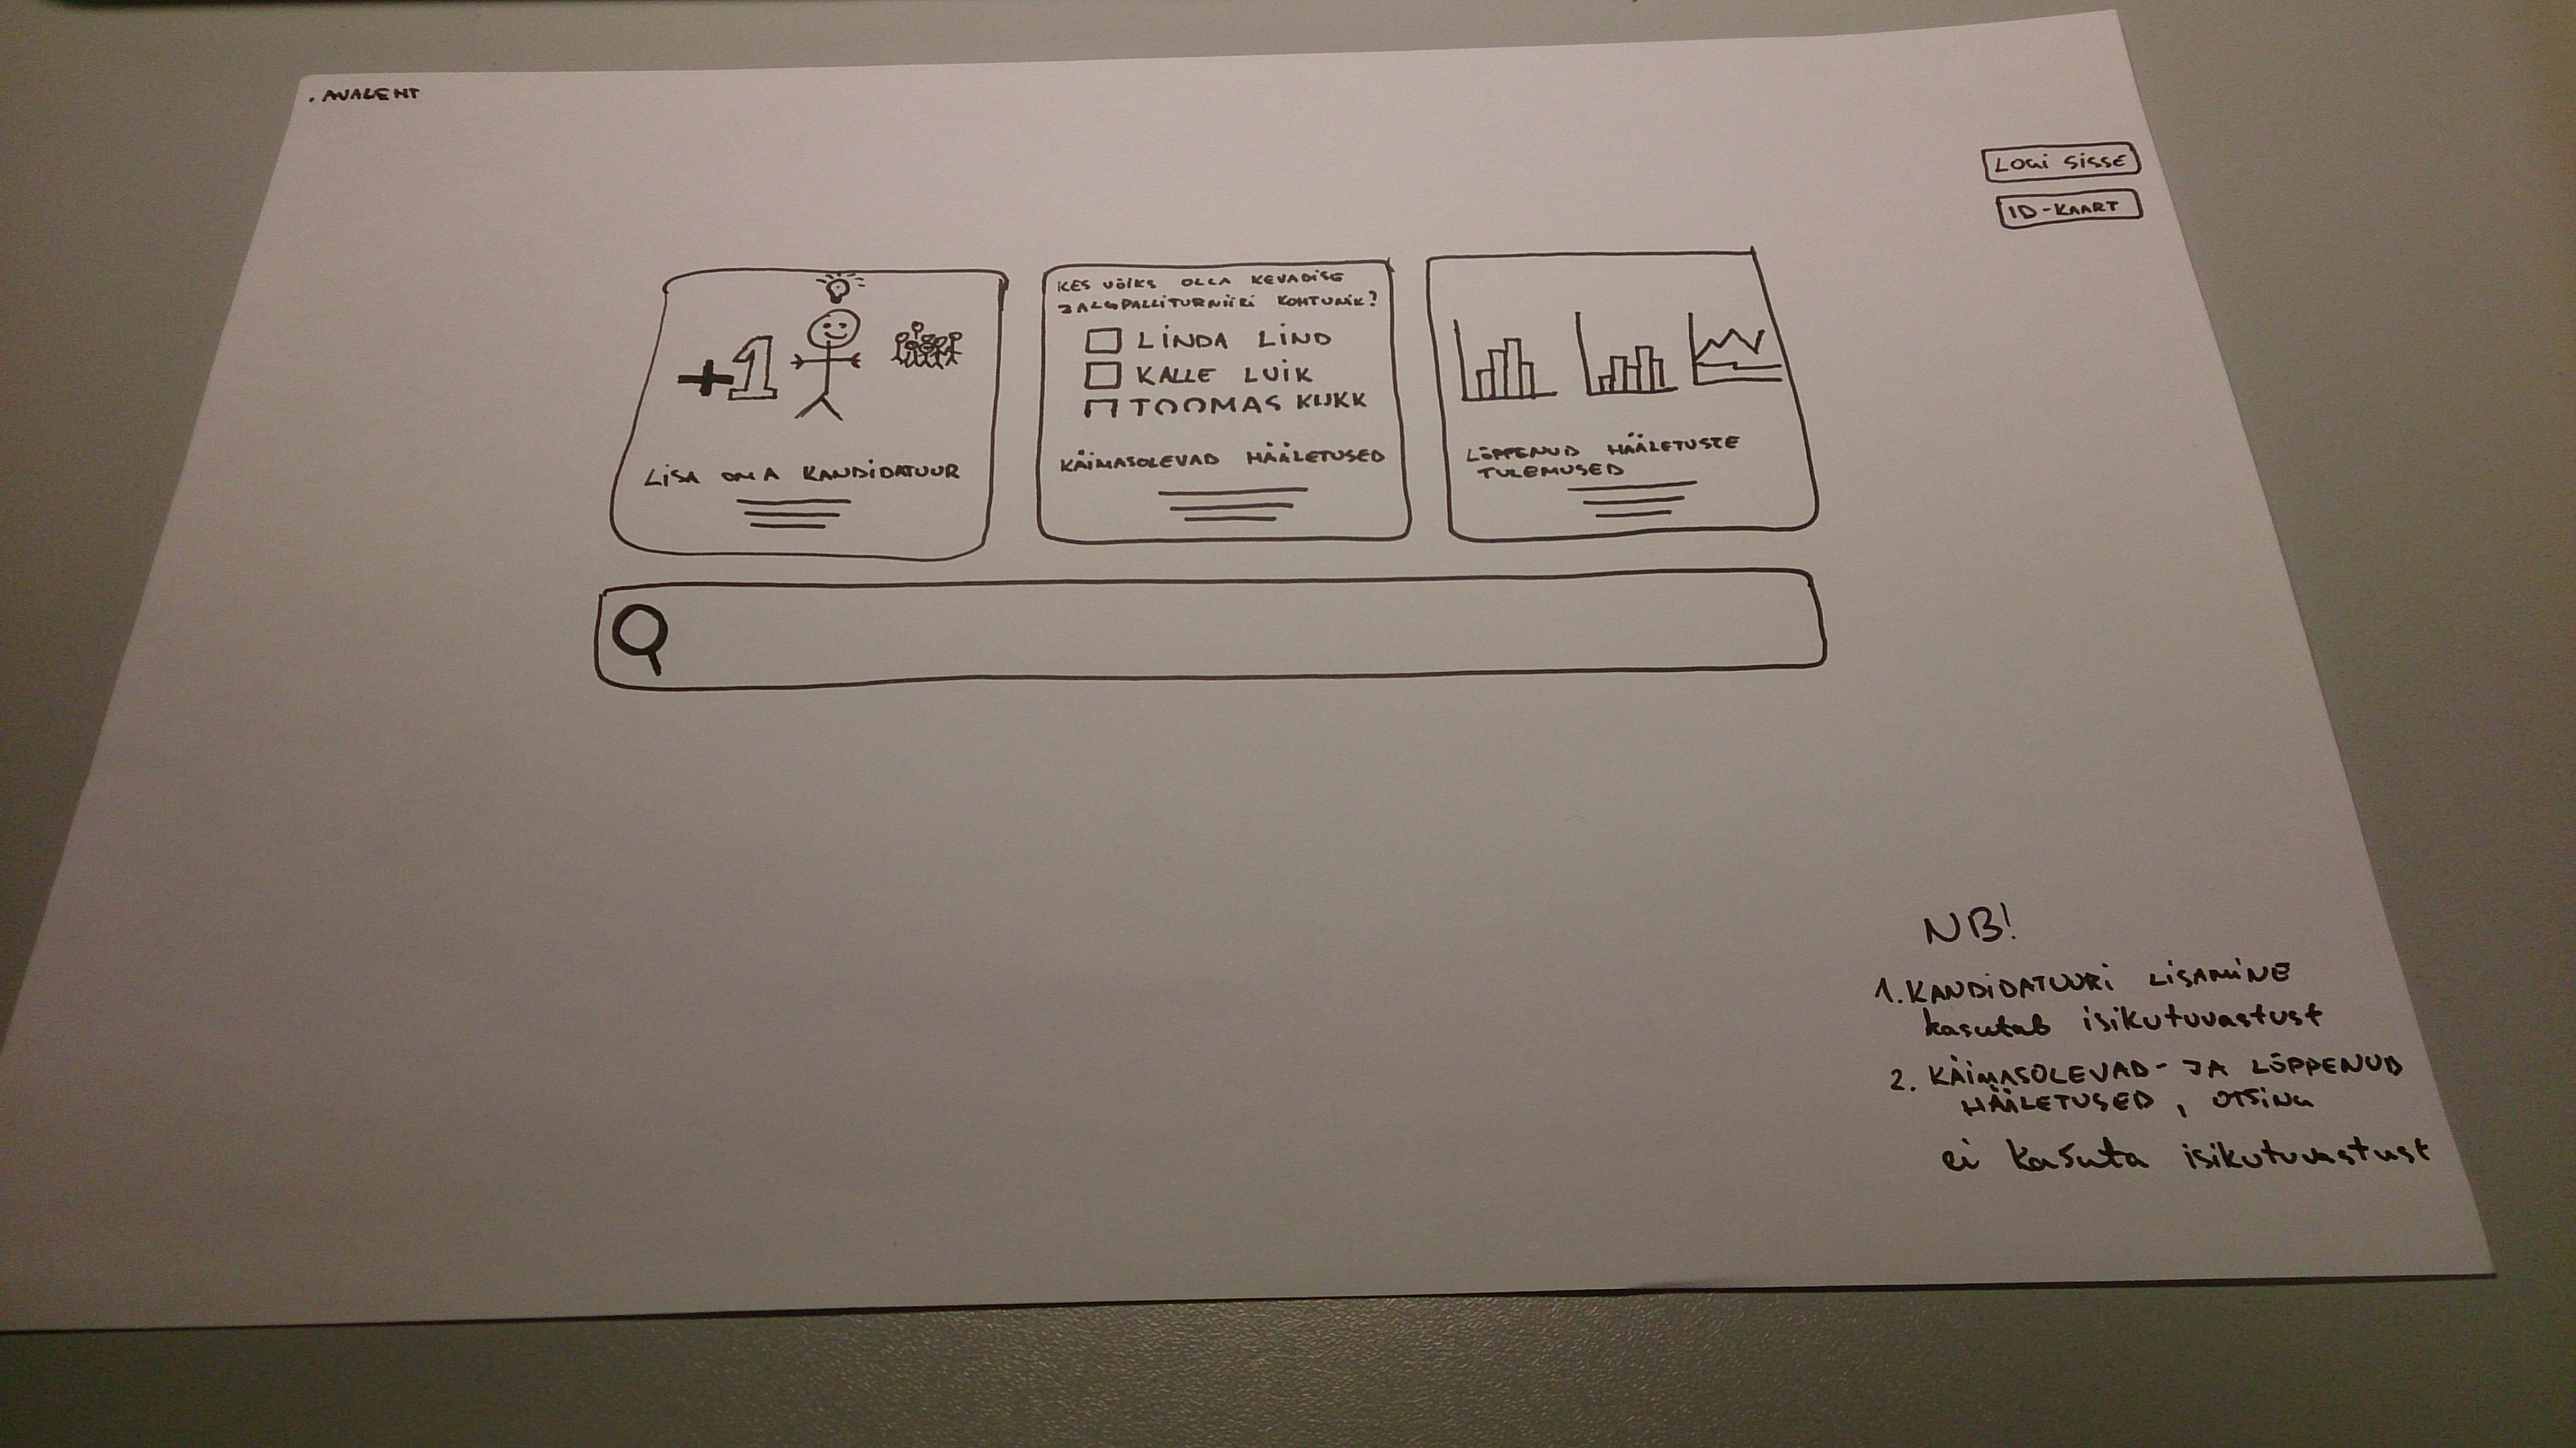 . AVALEHT
LOGI SISSE
ID-KAART
+1
LISA OMA KANDIDATUUR
KES VÕIKS OLLA KEVADISE
JALGPALLITURNIIRI KOHTUNIK?
LINDA LIND
KALLE LUIK
TOOMAS KUKK
KÄIMASOLEVAD HÄÄLETUSED
LÕPPENUD HÄÄLETUSTE
TULEMUSED
NB!
1. KANDIDATUURI LISAMINE
kasutab isikutuvastust
2. KÄIMASOLEVAD- JA LÕPPENUD
HÄÄLETUSED, OTSING
ei kasuta isikutuvastust